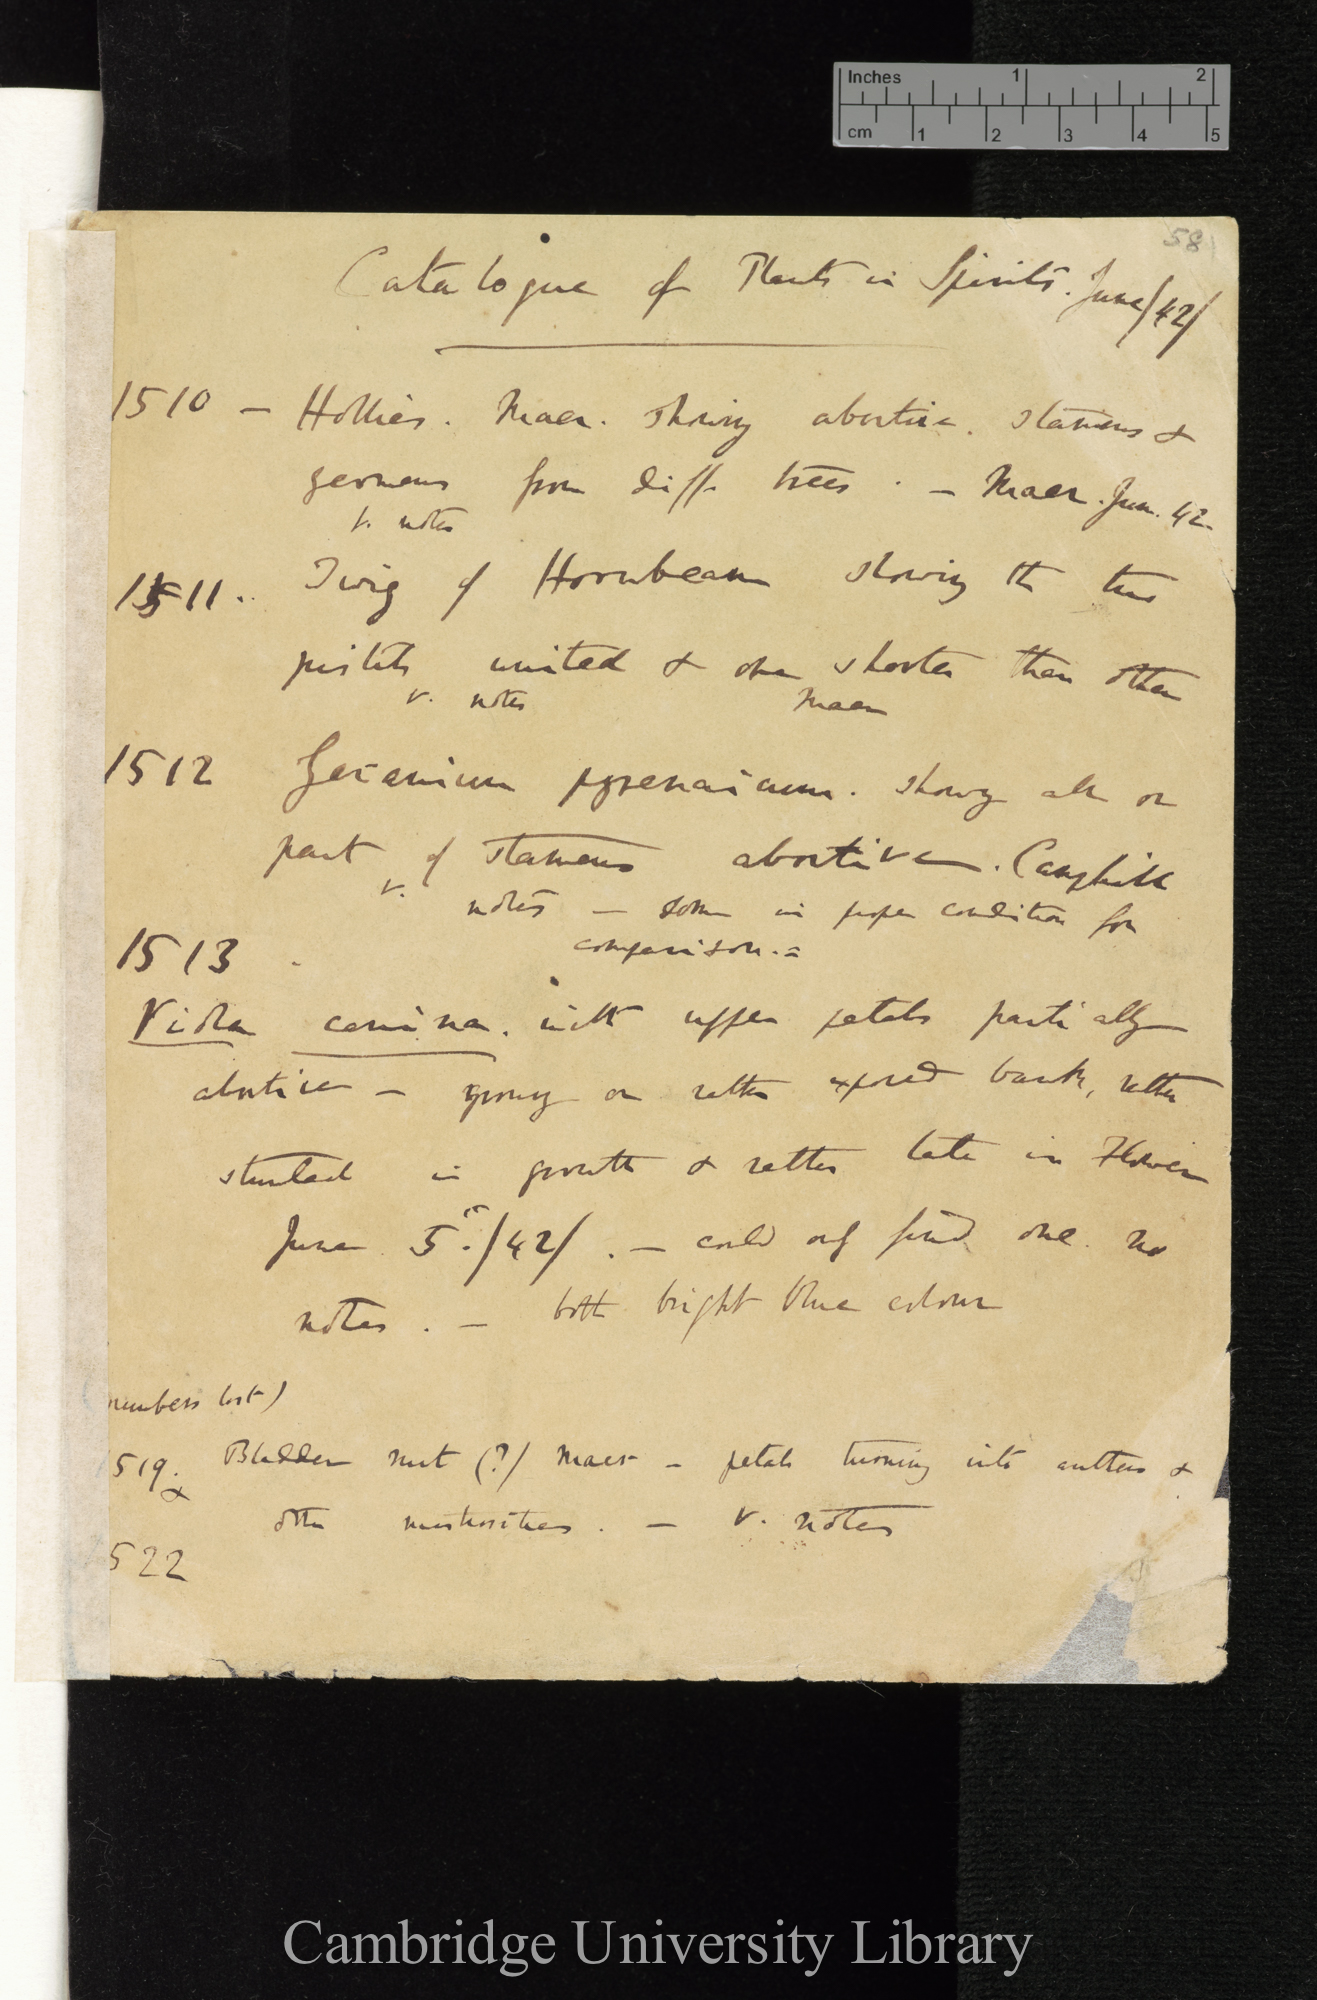 Inches 1 2
cm 1 2 3 4 5
58
Catalogue of Plants in Spirits. June/42/
1510 — Hollies. Maer. showing abortive. stamens &
germens from diff. trees. — Maer. Jun. 42
v. notes
1511. Twig of Hornbeam showing the two
pistils united & one shorter than other
v. notes Maer
1512 Geranium pyrenaicum. showing all or
part of stamens abortive. Caephill
v. notes — some in proper condition for
comparison. =
1513
Viola canina. with upper petals partially
abortive — growing on rather exposed bank, rather
stunted in growth & rather late in Flower
June 5th./42/. — could only find one. no
notes. — both bright blue colour
numbers lost)
1519. Bladder nut (?) Maer — petals turning into anthers &
&
other monstrosities. — v. notes
522
Cambridge University Library